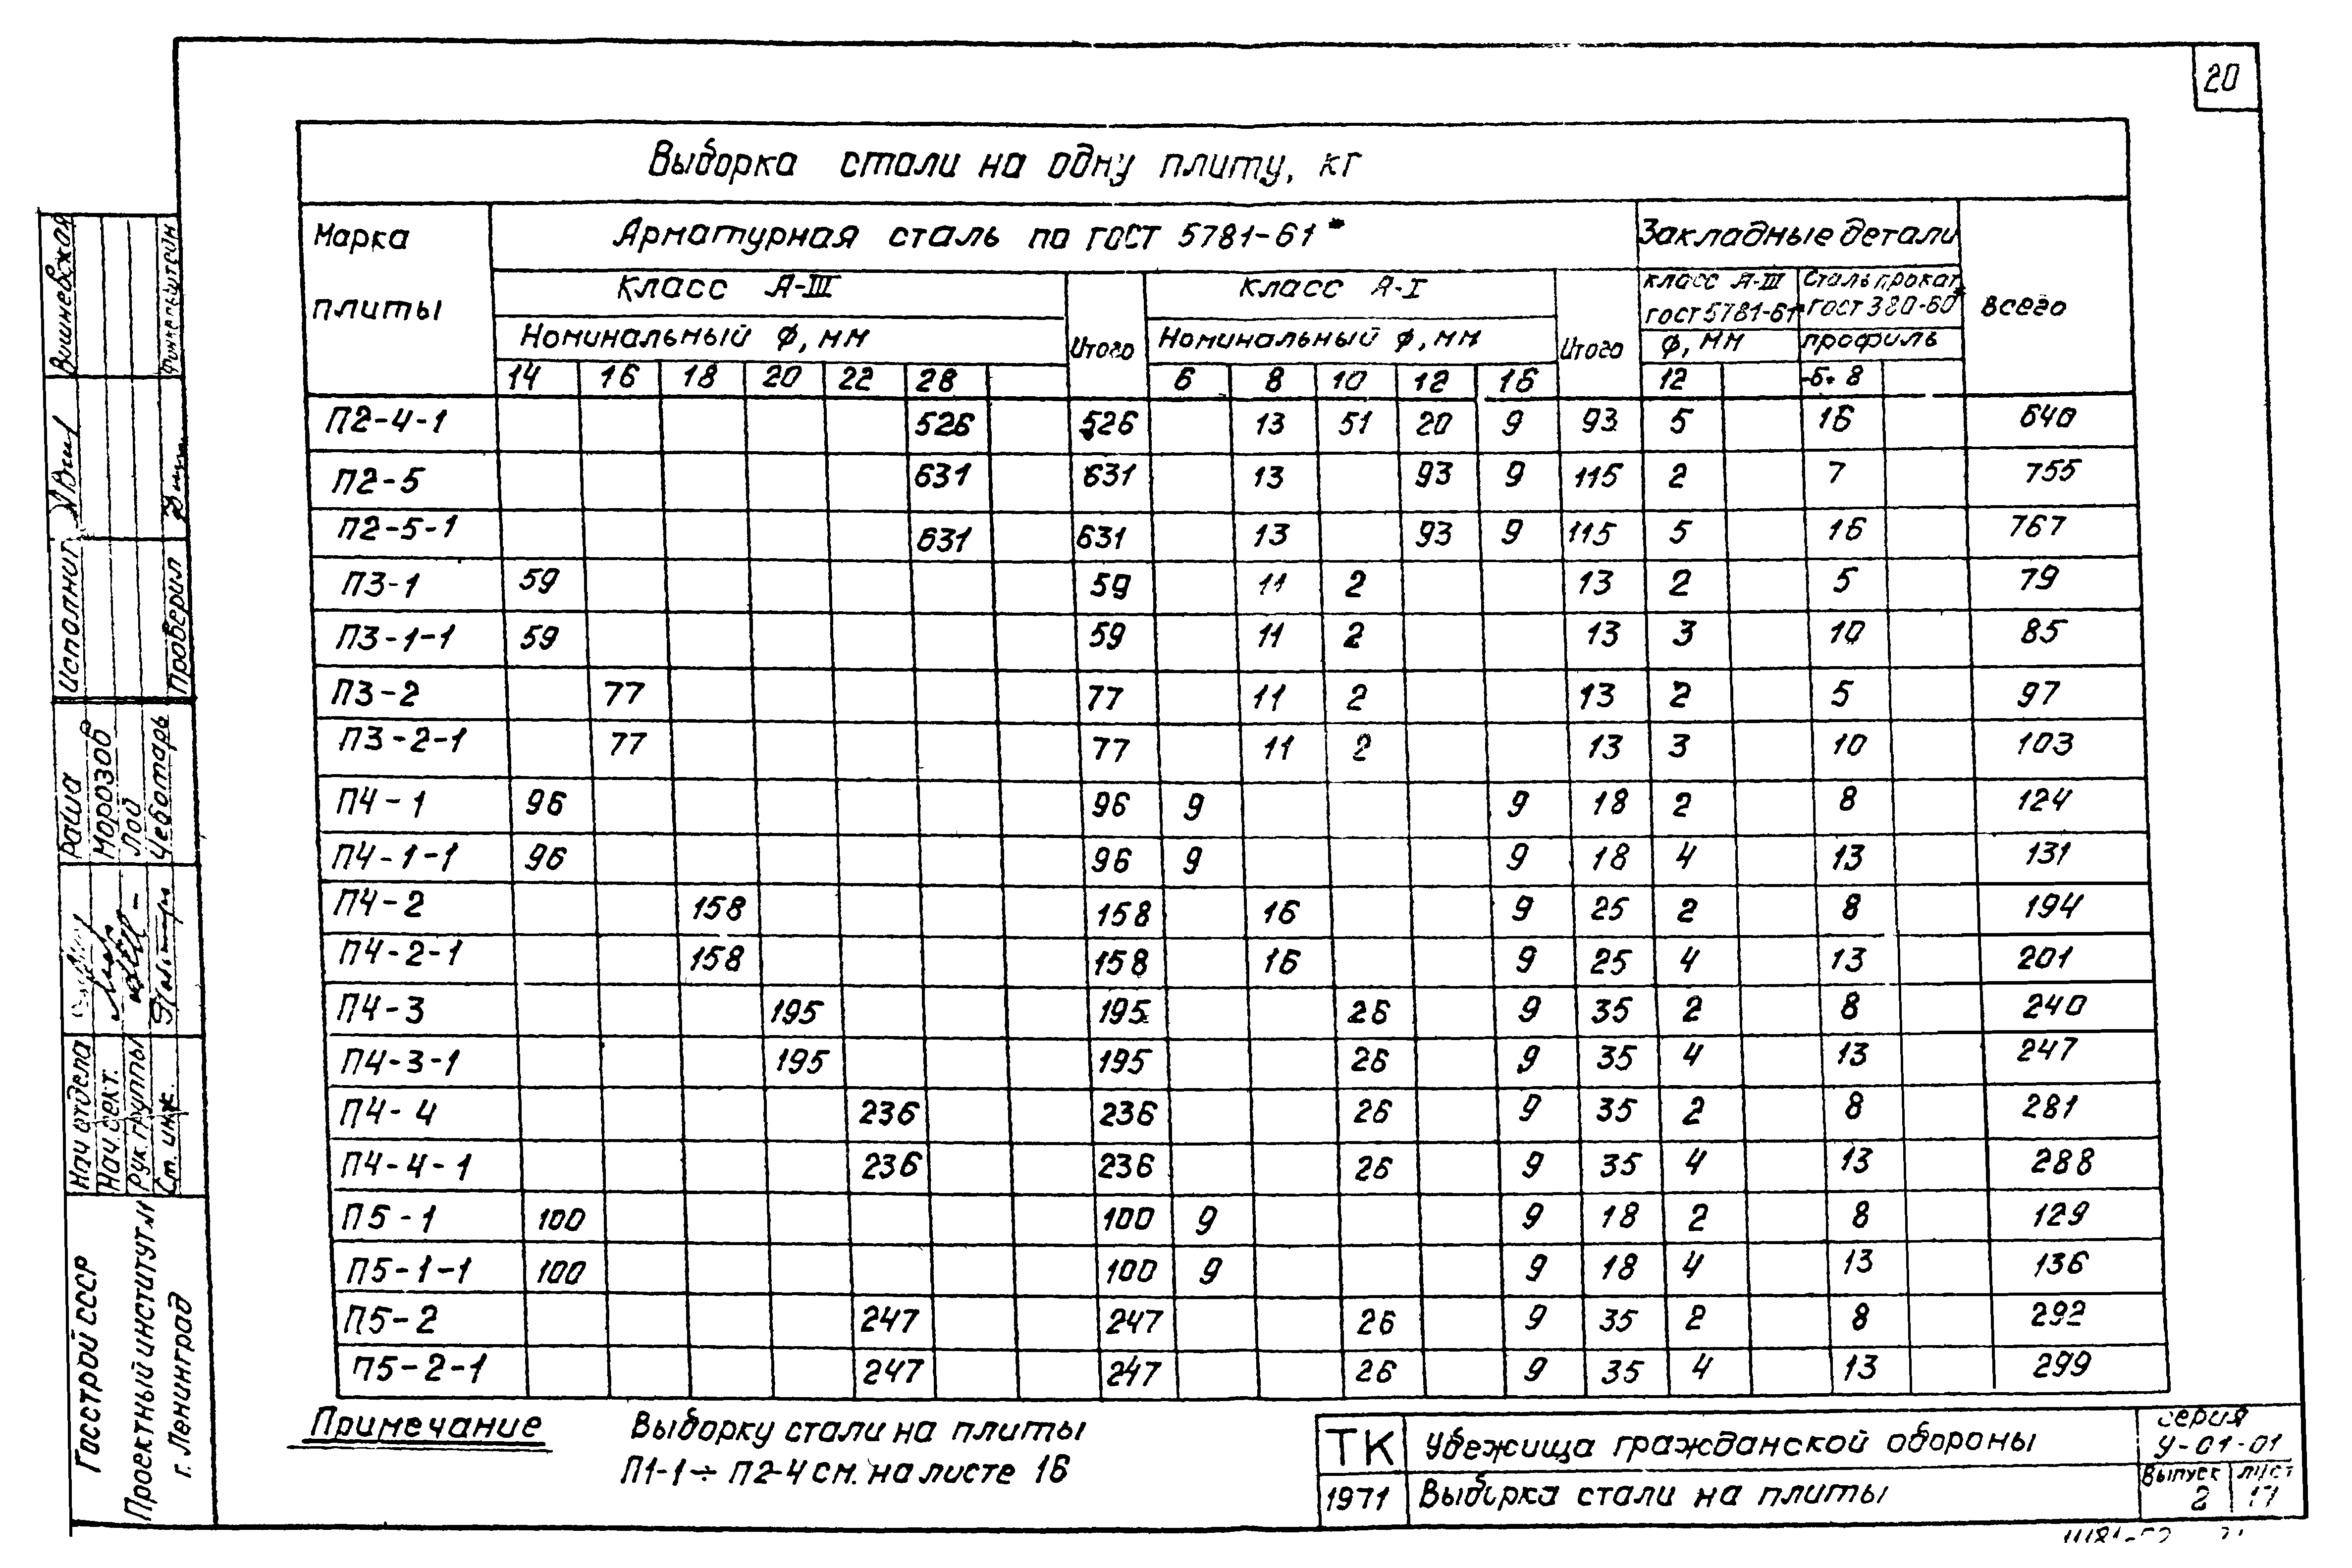 20
Выборка стали на одну плиту, кг
Марка плиты
Арматурная сталь по ГОСТ 5781-61*
Закладные детали
Всего
класс А-III
Итого
класс А-I
Итого
класс А-III ГОСТ 5781-61*
Сталь прокат ГОСТ 380-60*
Номинальный φ, мм
Номинальный φ, мм
φ, мм
профиль
14 16 18 20 22 28 6 8 10 12 16 12 -δ=8
П2-4-1 526 526 13 51 20 9 93 5 16 640
П2-5 631 631 13 93 9 115 2 7 755
П2-5-1 631 631 13 93 9 115 5 16 767
П3-1 59 59 11 2 13 2 5 79
П3-1-1 59 59 11 2 13 3 10 85
П3-2 77 77 11 2 13 2 5 97
П3-2-1 77 77 11 2 13 3 10 103
П4-1 96 96 9 9 18 2 8 124
П4-1-1 96 96 9 9 18 4 13 131
П4-2 158 158 16 9 25 2 8 194
П4-2-1 158 158 16 9 25 4 13 201
П4-3 195 195 26 9 35 2 8 240
П4-3-1 195 195 26 9 35 4 13 247
П4-4 236 236 26 9 35 2 8 281
П4-4-1 236 236 26 9 35 4 13 288
П5-1 100 100 9 9 18 2 8 129
П5-1-1 100 100 9 9 18 4 13 136
П5-2 247 247 26 9 35 2 8 292
П5-2-1 247 247 26 9 35 4 13 299
Примечание Выборку стали на плиты
П1-1÷П2-4 см. на листе 16
ТК Убежища гражданской обороны
серия У-01-01
1971 Выборка стали на плиты
Выпуск 2
лист 17
Госстрой СССР
Проектный институт №1
г. Ленинград
Нач отдела Раша
Нач. сект. Морозов
Рук. группы Лой
Ст. инж. Чеботарь
Исполнил Вишневская
Проверил